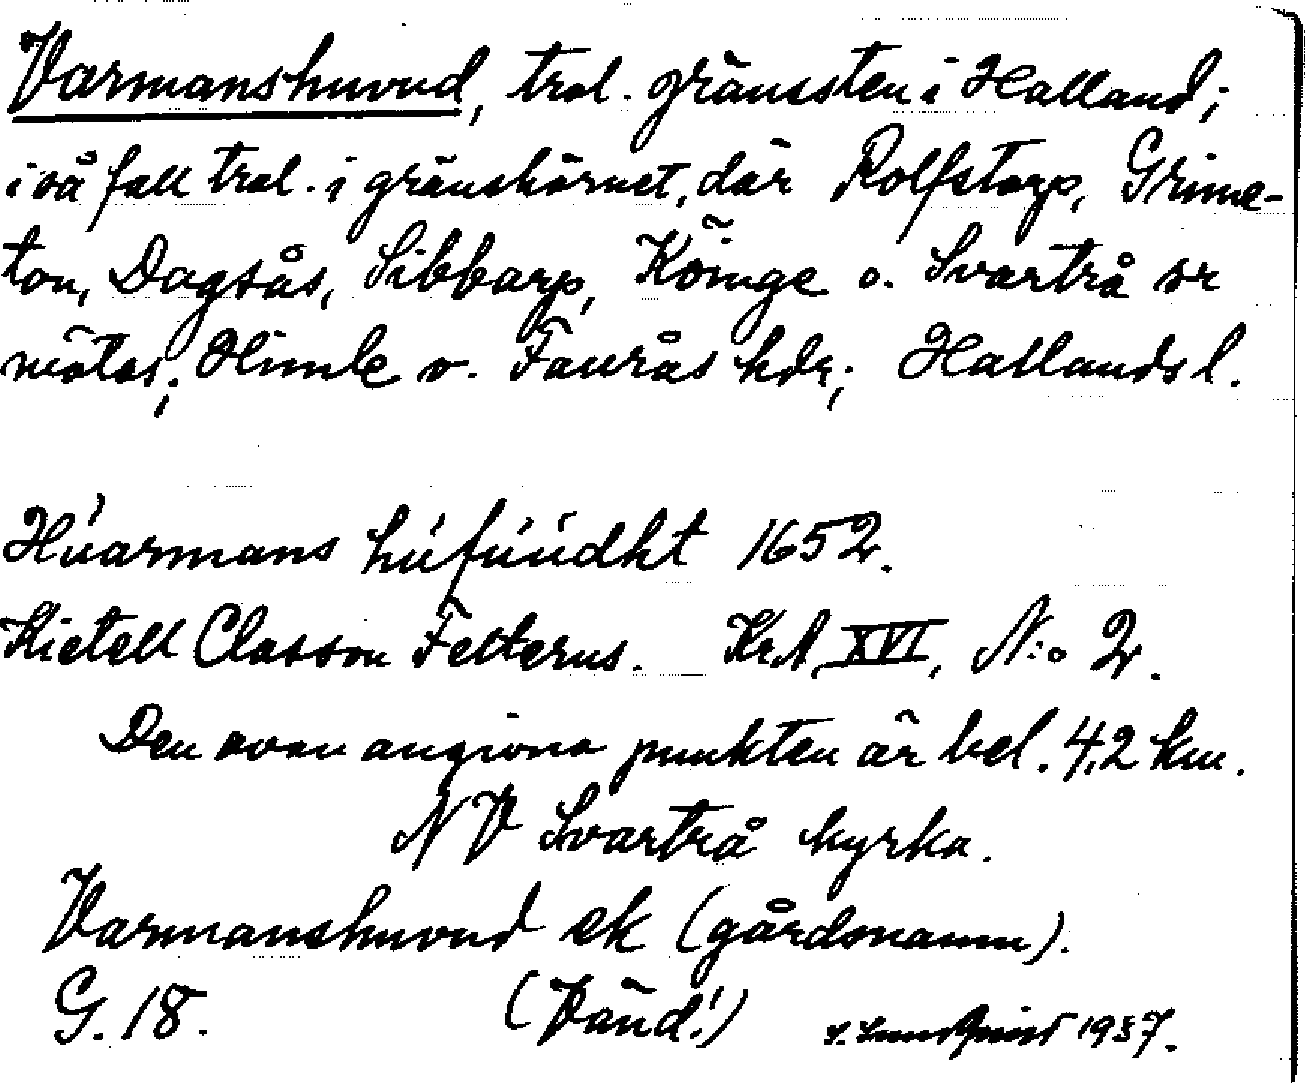 Varmanshuvud, trol. gränssten i Halland;
i så fall trol. i gränshörnet, där Rolfstorp, Grime-
ton, Dagsås, Sibbarp, Köinge o. Svartrå sr
mötas; Himle o. Faurås hdr; Hallands l.
Húarmans húfúúdht 1652.
Kietell Classon Felterus. KrA XVI, N:o 2.
Den ovan angivna punkten är bel. 4,2 km.
NV Svartrå kyrka.
Varmanshuvud ek (gårdsnamn).
G. 18. (Vänd!) 1937.